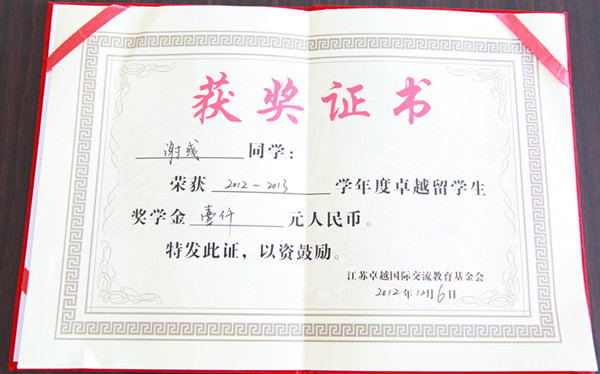 获奖证书
谢彧 同学：
荣获 2012-2013 学年度卓越留学生
奖学金 壹仟 元人民币。
特发此证，以资鼓励。
江苏卓越国际交流教育基金会
2012年12月6日